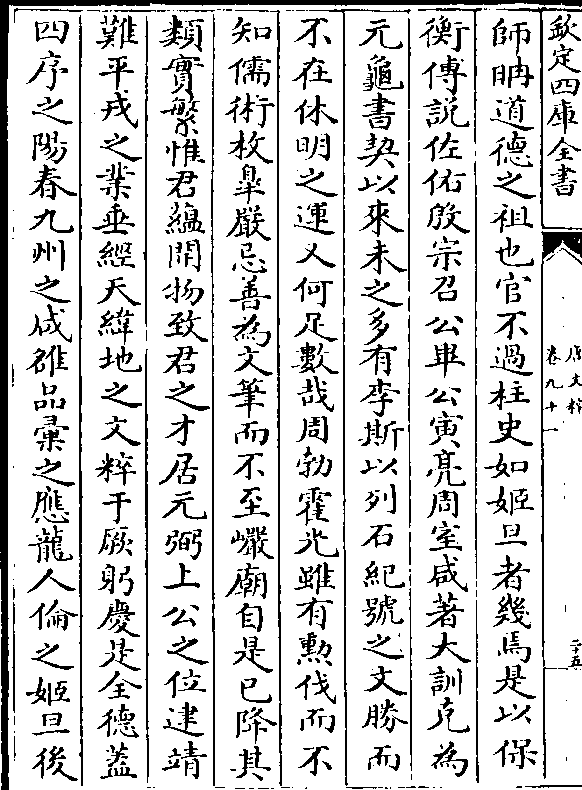 欽定四庫全書
唐文粹
卷九十一
二十五
師聃道德之祖也官不過柱史如姬旦者幾焉是以保
衡傅説佐佑殷宗召公畢公寅亮周室咸著大訓克為
元龜書契以來未之多有李斯以列石紀號之文勝而
不在休明之運又何足數哉周勃霍光雖有勲伐而不
知儒術枚臯嚴忌善為文筆而不至巖廟自是已降其
類實繁惟君蘊開物致君之才居元弼上公之位建靖
難平戎之業垂經天緯地之文粹于厥躬慶是全德蓋
四序之陽春九州之咸雒品彚之應龍人倫之姬旦後